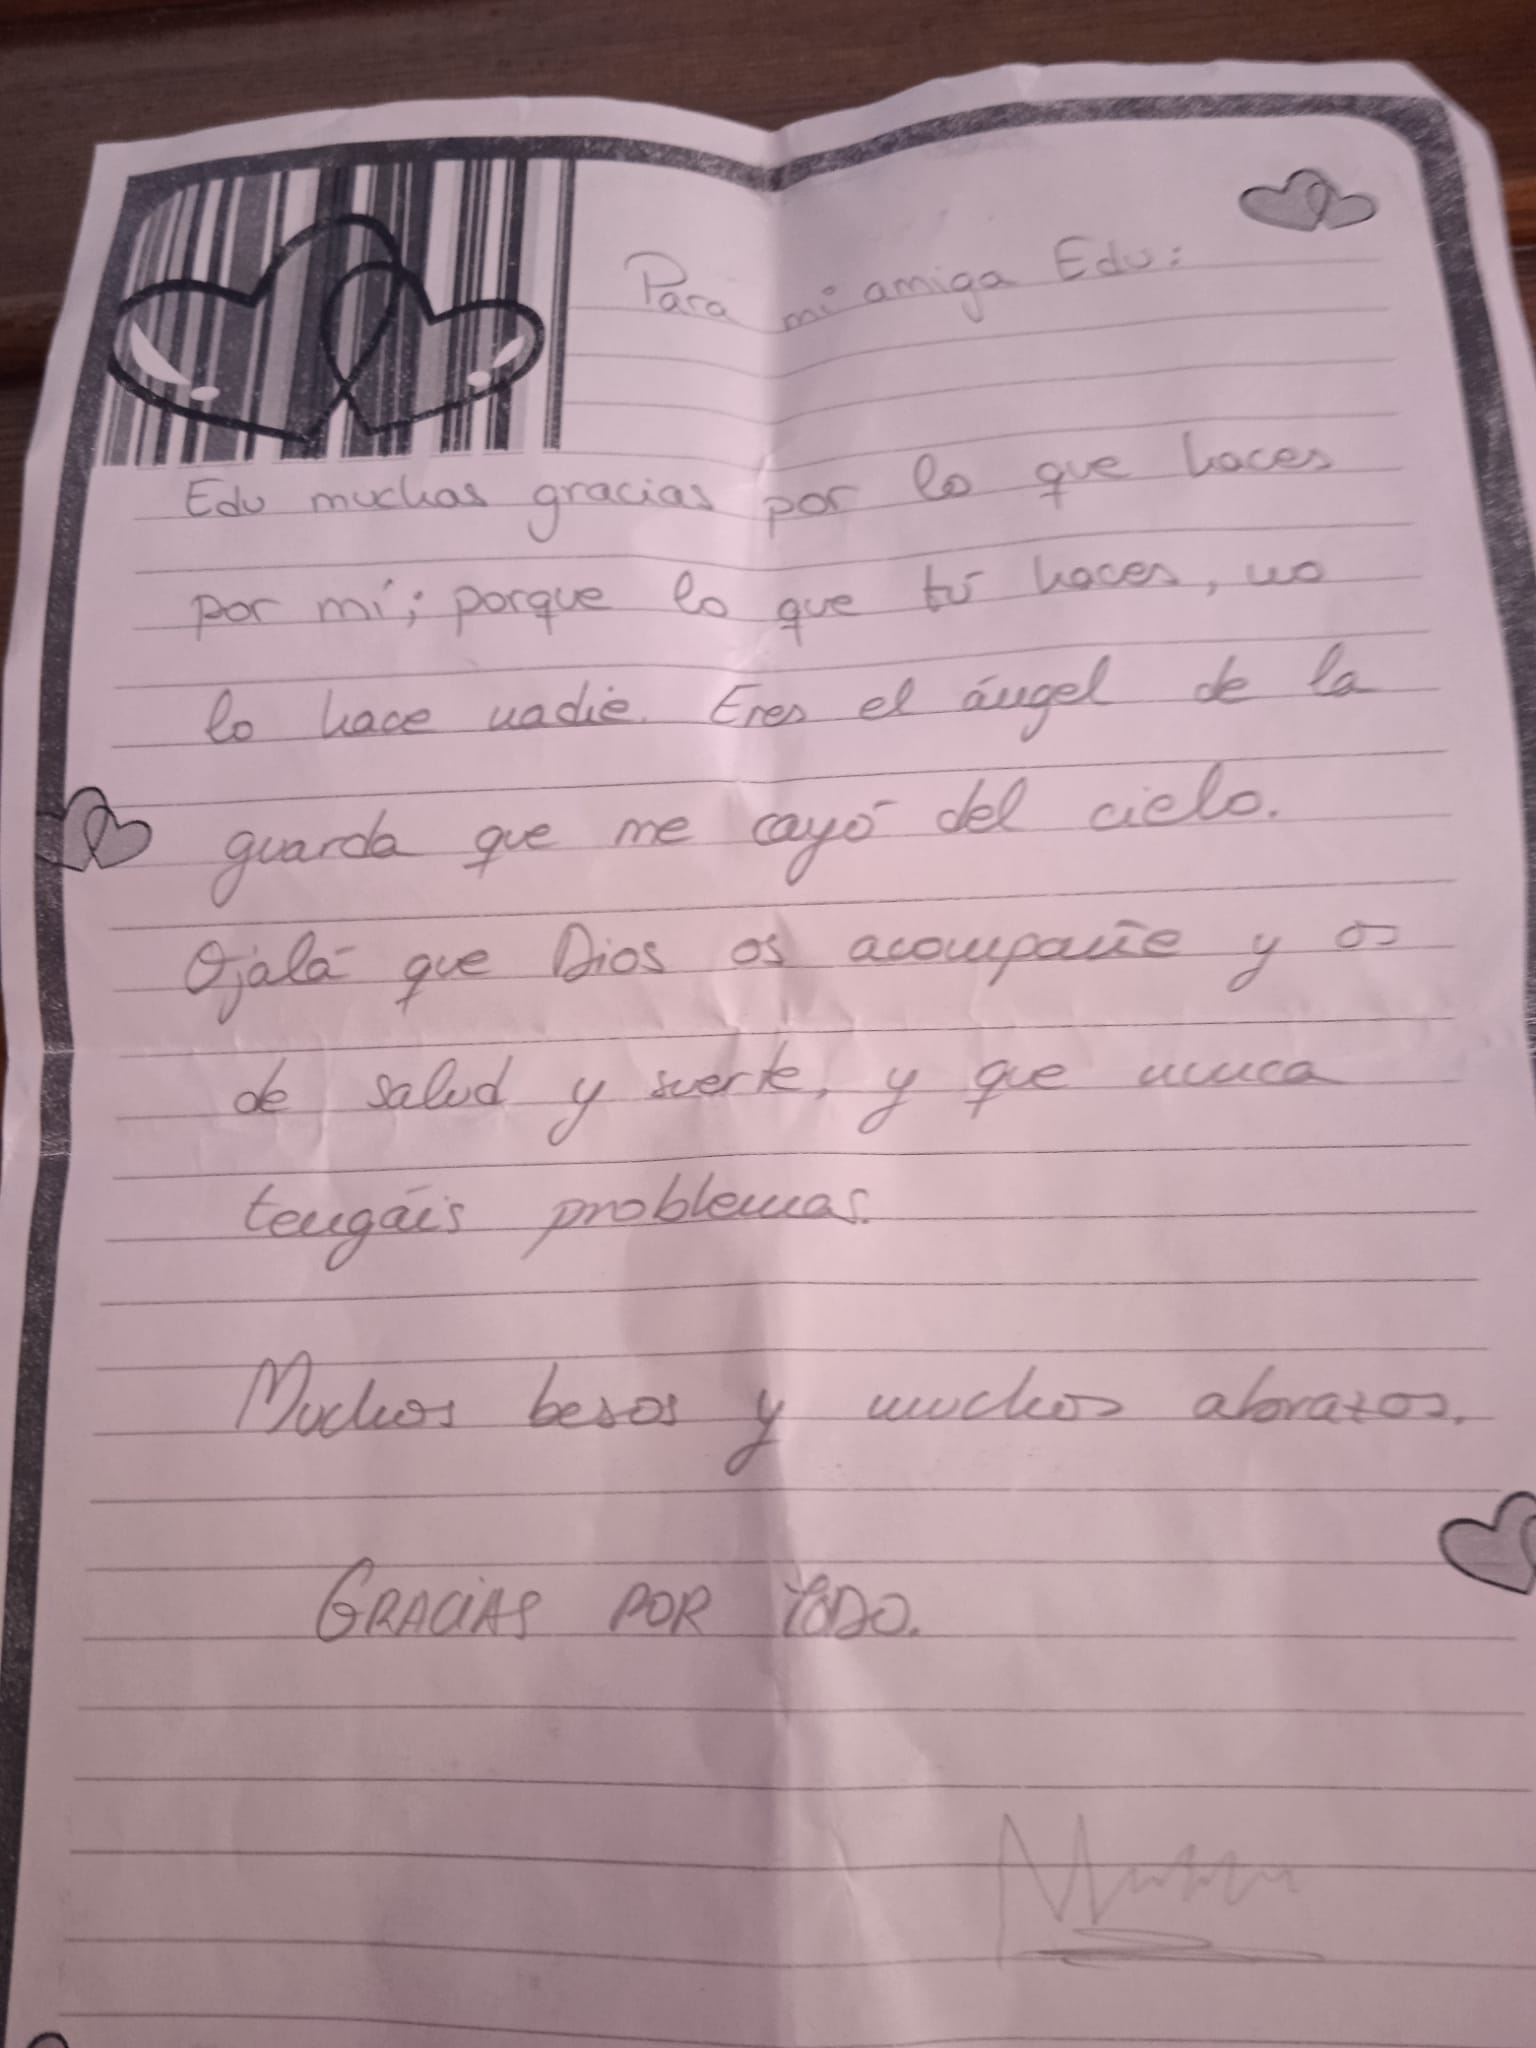 Para mi amiga Edu:
Edu muchas gracias por lo que haces
por mí; porque lo que tú haces, no
lo hace nadie. Eres el ángel de la
guarda que me cayó del cielo.
Ojalá que Dios os acompañe y os
de salud y suerte, y que nunca
tengáis problemas.
Muchos besos y muchos abrazos.
GRACIAS POR TODO.